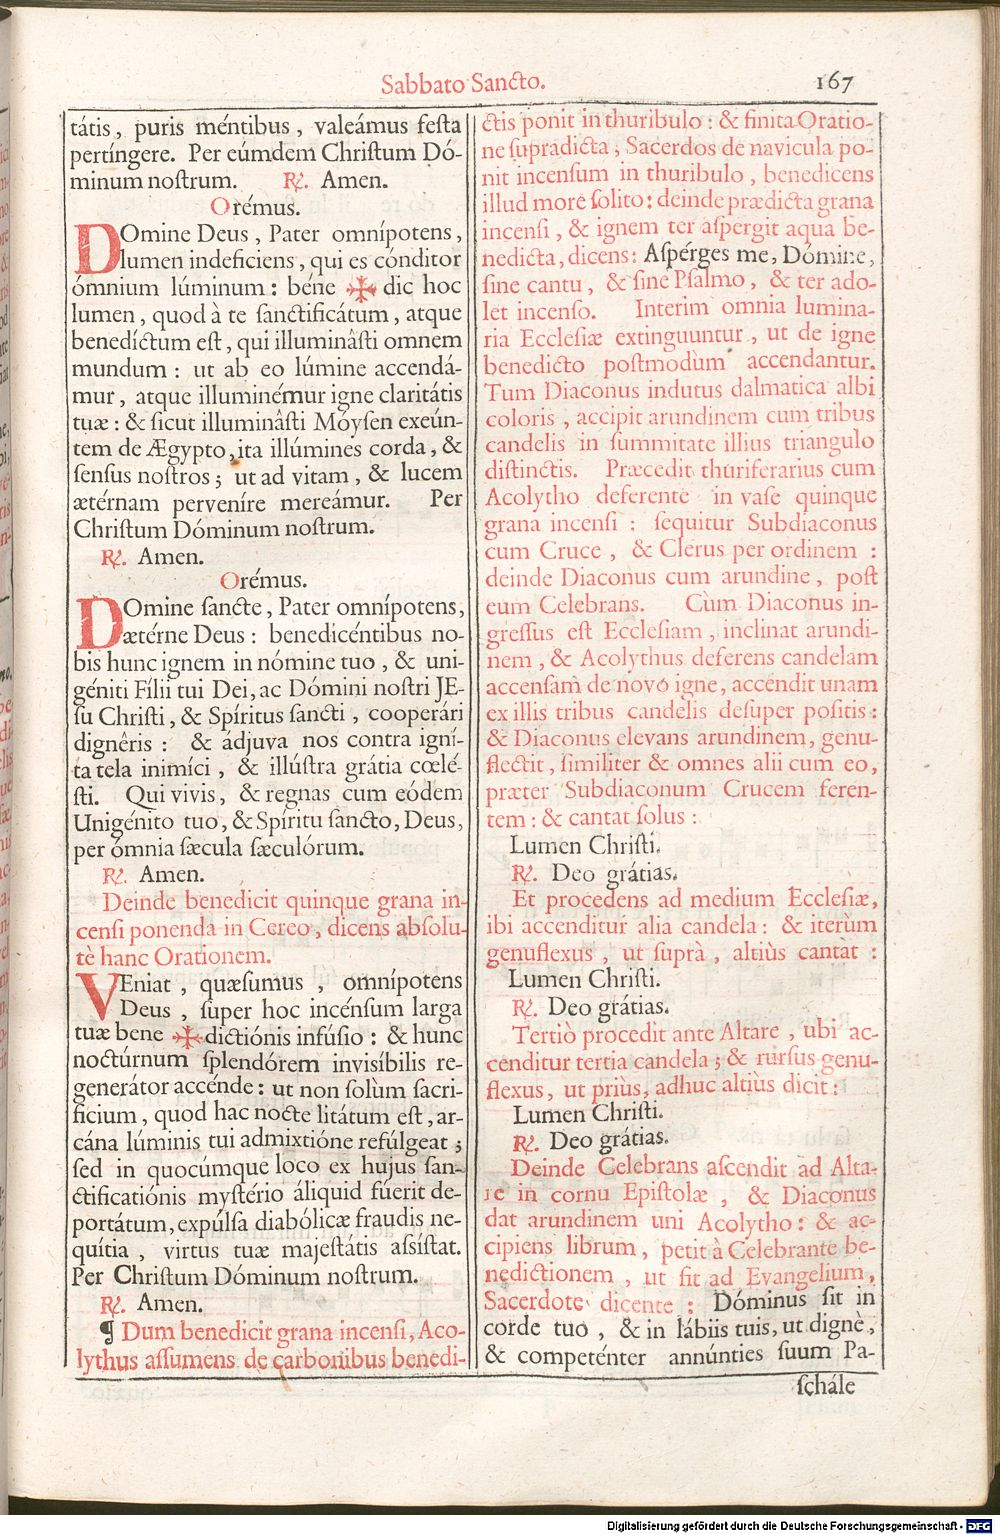 Sabbato Sancto. 167
tátis, puris méntibus, valeámus feſta
pertíngere. Per eúmdem Chriſtum Dó-
minum noſtrum. ℟. Amen.
Orémus.
DOmine Deus, Pater omnípotens,
lumen indeficiens, qui es cónditor
ómnium lúminum: béne ✠ dic hoc
lumen, quod à te ſanctificátum, atque
benedíctum eſt, qui illuminâſti omnem
mundum: ut ab eo lúmine accendá-
mur, atque illuminémur igne claritátis
tuæ: & ſicut illuminâſti Moyſen exeún-
tem de Ægypto, ita illúmines corda, &
ſenſus noſtros; ut ad vitam, & lucem
ætérnam perveníre mereámur. Per
Chriſtum Dóminum noſtrum.
℟. Amen.
Orémus.
DOmine ſancte, Pater omnípotens,
ætérne Deus: benedicéntibus no-
bis hunc ignem in nómine tuo, & uni-
géniti Fílii tui Dei, ac Dómini noſtri JE-
ſu Chriſti, & Spíritus ſancti, cooperári
dignêris: & ádjuva nos contra igní-
ta tela inimíci, & illúſtra grátia cœlé-
ſti. Qui vivis, & regnas cum eódem
Unigénito tuo, & Spíritu ſancto, Deus,
per ómnia ſæcula ſæculórum.
℟. Amen.
Deinde benedicit quinque grana in-
cenſi ponenda in Cereo, dicens abſolu-
tè hanc Orationem.
VEniat, quæſumus, omnípotens
Deus, ſuper hoc incénſum larga
tuæ bene ✠ dictiónis infúſio: & hunc
noctúrnum ſplendórem inviſíbilis re-
generátor accénde: ut non ſolùm sacri-
ficium, quod hac nocte litátum eſt, ar-
cána lúminis tui admixtióne refúlgeat;
ſed in quocúmque loco ex hujus ſan-
ctificatiónis myſtério áliquid fúerit de-
portátum, expúlſa diabólicæ fraudis ne-
quítia, virtus tuæ majeſtátis aſſiſtat.
Per Chriſtum Dóminum noſtrum.
℟. Amen.
¶ Dum benedicit grana incenſi, Aco-
lythus aſſumens de carbonibus benedi-
ctis ponit in thuribulo: & finita Oratio-
ne ſupradicta, Sacerdos de navicula po-
nit incenſum in thuribulo, benedicens
illud more ſolito: deinde prædicta grana
incenſi, & ignem ter aſpergit aqua be-
nedicta, dicens: Aſpérges me, Dómine,
ſine cantu, & ſine Pſalmo, & ter ado-
let incenſo. Interim omnia lumina-
ria Eccleſiæ extinguuntur, ut de igne
benedicto poſtmodùm accendantur.
Tum Diaconus indutus dalmatica albi
coloris, accipit arundinem cum tribus
candelis in ſummitate illius triangulo
diſtinctis. Præcedit thuriferarius cum
Acolytho deferente in vaſe quinque
grana incenſi: ſequitur Subdiaconus
cum Cruce, & Clerus per ordinem:
deinde Diaconus cum arundine, poſt
eum Celebrans. Cùm Diaconus in-
greſſus eſt Eccleſiam, inclinat arundi-
nem, & Acolythus deferens candelam
accenſam de novo igne, accendit unam
ex illis tribus candelis deſuper poſitis:
& Diaconus elevans arundinem, genu-
flectit, ſimiliter & omnes alii cum eo,
præter Subdiaconum Crucem feren-
tem: & cantat ſolus:
Lumen Chriſti.
℟. Deo grátias.
Et procedens ad medium Eccleſiæ,
ibi accenditur alia candela: & iterùm
genuflexus, ut ſuprà, altiùs cantat:
Lumen Chriſti.
℟. Deo grátias.
Tertiò procedit ante Altare, ubi ac-
cenditur tertia candela; & rurſus genu-
flexus, ut priùs, adhuc altiùs dicit:
Lumen Chriſti.
℟. Deo grátias.
Deinde Celebrans aſcendit ad Alta-
re in cornu Epiſtolæ, & Diaconus
dat arundinem uni Acolytho: & ac-
cipiens librum, petit à Celebrante be-
nedictionem, ut ſit ad Evangelium,
Sacerdote dicente: Dóminus ſit in
corde tuo, & in lábiis tuis, ut dignè,
& competénter annúnties ſuum Pa-
ſchále
Digitalisierung gefördert durch die Deutsche Forschungsgemeinschaft - DFG